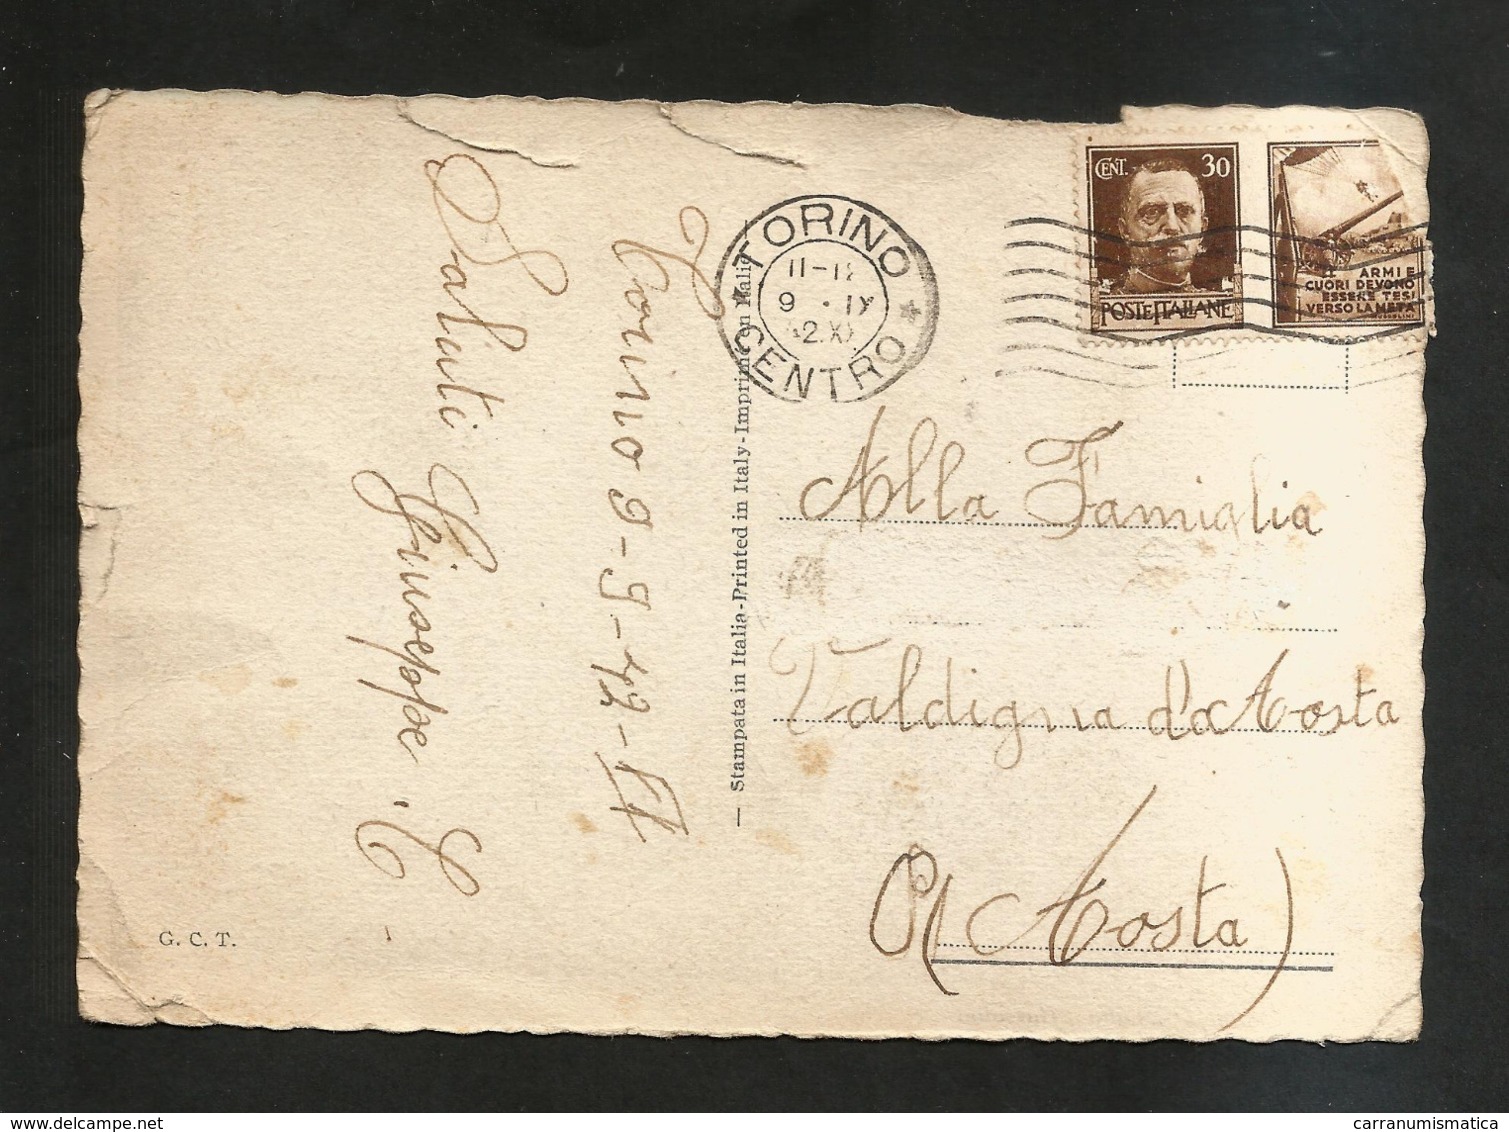 Torino 9-9-42-
Saluti Giuseppe C.
G. C. T.
— Stampata in Italia-Printed in Italy-Imprimé en Italie
TORINO
11-12
9 . IX
42.XX
CENTRO
CENT. 30
POSTE ITALIANE
ARMI E
CUORI DEVONO
ESSERE TESI
VERSO LA META
MUSSOLINI
Alla Famiglia
Valdigna d'Aosta
(Aosta)
delcampe.net
carranumismatica